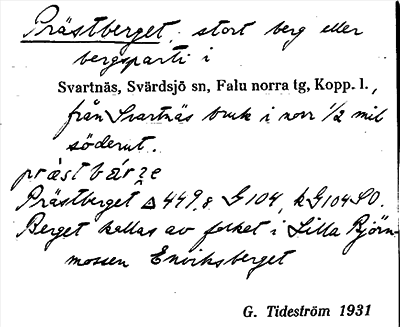 Prästberget, stort berg eller
bergsparti i
Svartnäs, Svärdsjö sn, Falu norra tg, Kopp. l.,
från Svartnäs bruk i norr 1/2 mil
söderut.
Prästberget △ 449,8 G 104, k G 104 SO.
Berget kallas av folket i Lilla Björn-
mossen Enviksberget
G. Tideström 1931